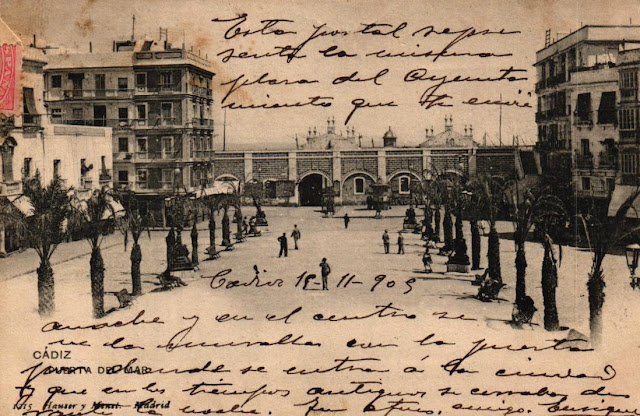 Esta postal repre
senta la misma
plaza del Ayunta
miento que te envié
Cadiz 15-11-905
anoche y en el centro se
ve la muralla con la puerta
por donde se entra á la ciudad
y que en los tiempos antiguos se cerraba de
noche. Tu afmo. amigo. Enrique
CÁDIZ
PUERTA DEL MAR
1215 Hauser y Menet.- Madrid